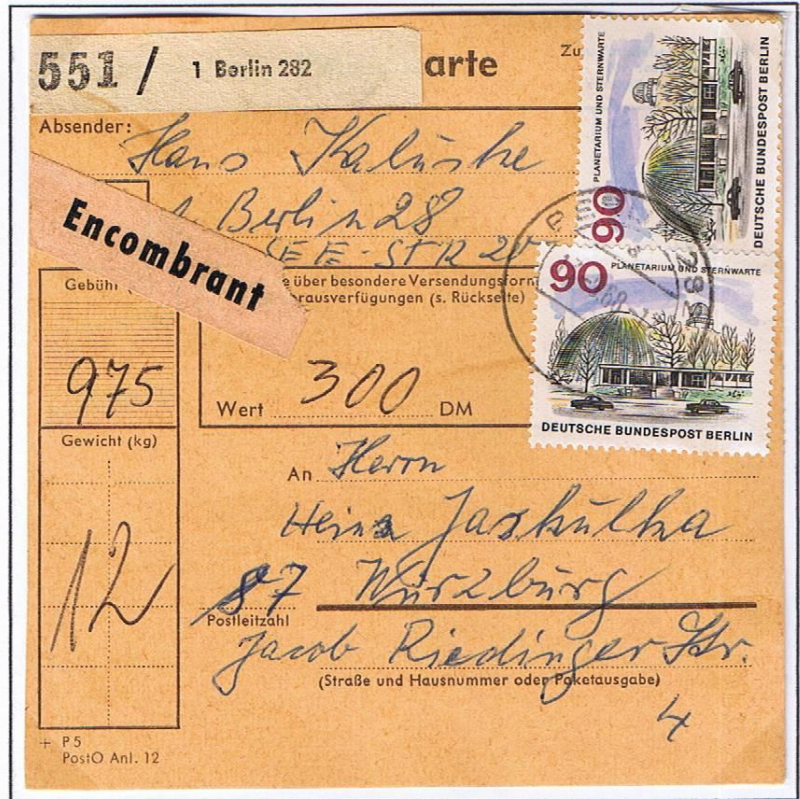 551 / 1 Berlin 282
arte
Zu
Absender: Hans Kaluske
1 Berlin 28
EE-STR 20
Encombrant
Gebühr
e über besondere Versendungsform
orausverfügungen (s. Rückseite)
975
Wert 300 DM
Gewicht (kg)
12
An Herrn
Heinz Jaskulka
87 Würzburg
Postleitzahl
Jacob Riedinger Str.
(Straße und Hausnummer oder Paketausgabe)
4
+ P 5
PostO Anl. 12
90
PLANETARIUM UND STERNWARTE
DEUTSCHE BUNDESPOST BERLIN
90
PLANETARIUM UND STERNWARTE
DEUTSCHE BUNDESPOST BERLIN